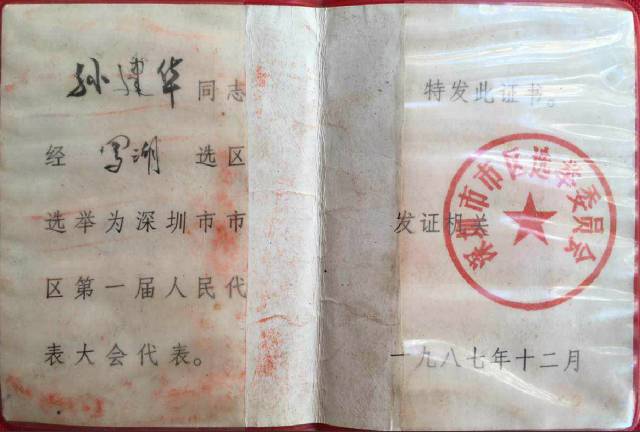 孙建华同志
经罗湖选区
选举为深圳市市
区第一届人民代
表大会代表。
特发此证书。
发证机关
深圳市市区选举委员会
一九八七年十二月